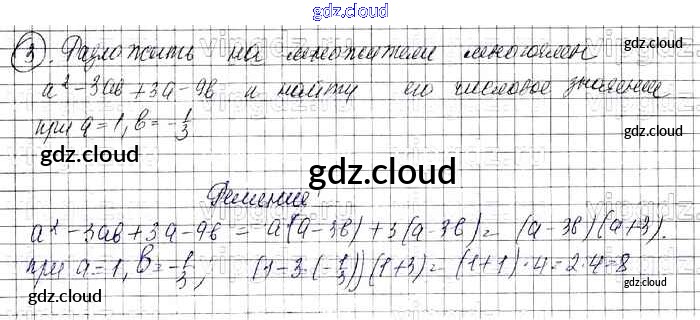 gdz.cloud
3). Разложить на множители многочлен
a² - 3ab + 3a - 9b и найти его числовое значение
при a = 1, b = -1/3
gdz.cloud
gdz.cloud
gdz.cloud
Решение
a² - 3ab + 3a - 9b = a(a - 3b) + 3(a - 3b) = (a - 3b)(a + 3).
при a = 1, b = -1/3, (1 - 3·(-1/3))(1 + 3) = (1 + 1)·4 = 2·4 = 8
gdz.cloud
gdz.cloud